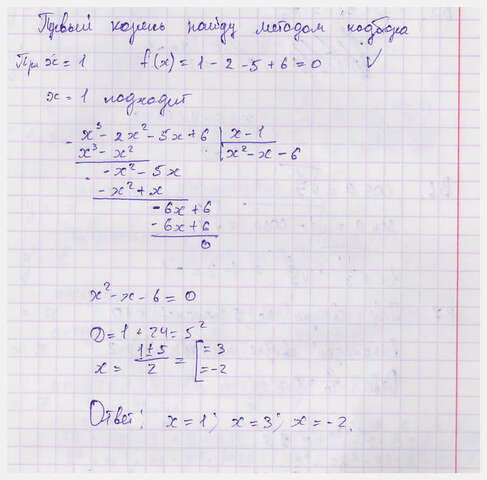 Первый корень найду методом подбора
При x = 1 f(x) = 1 - 2 - 5 + 6 = 0 ✓
x = 1 подходит
- x³ - 2x² - 5x + 6 | x - 1
x³ - x² | x² - x - 6
- -x² - 5x
- x² + x
- 6x + 6
- 6x + 6
0
x² - x - 6 = 0
D = 1 + 24 = 5²
x = (1 ± 5)/2 = [ = 3
= -2
Ответ: x = 1; x = 3; x = -2.